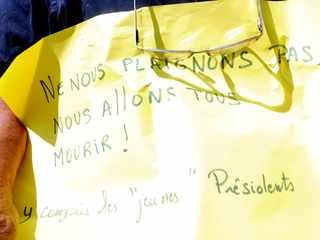 NE NOUS PLAIGNONS PAS,
NOUS AllONS TOUS
MOURIR !
y compris les "jeunes" Présidents